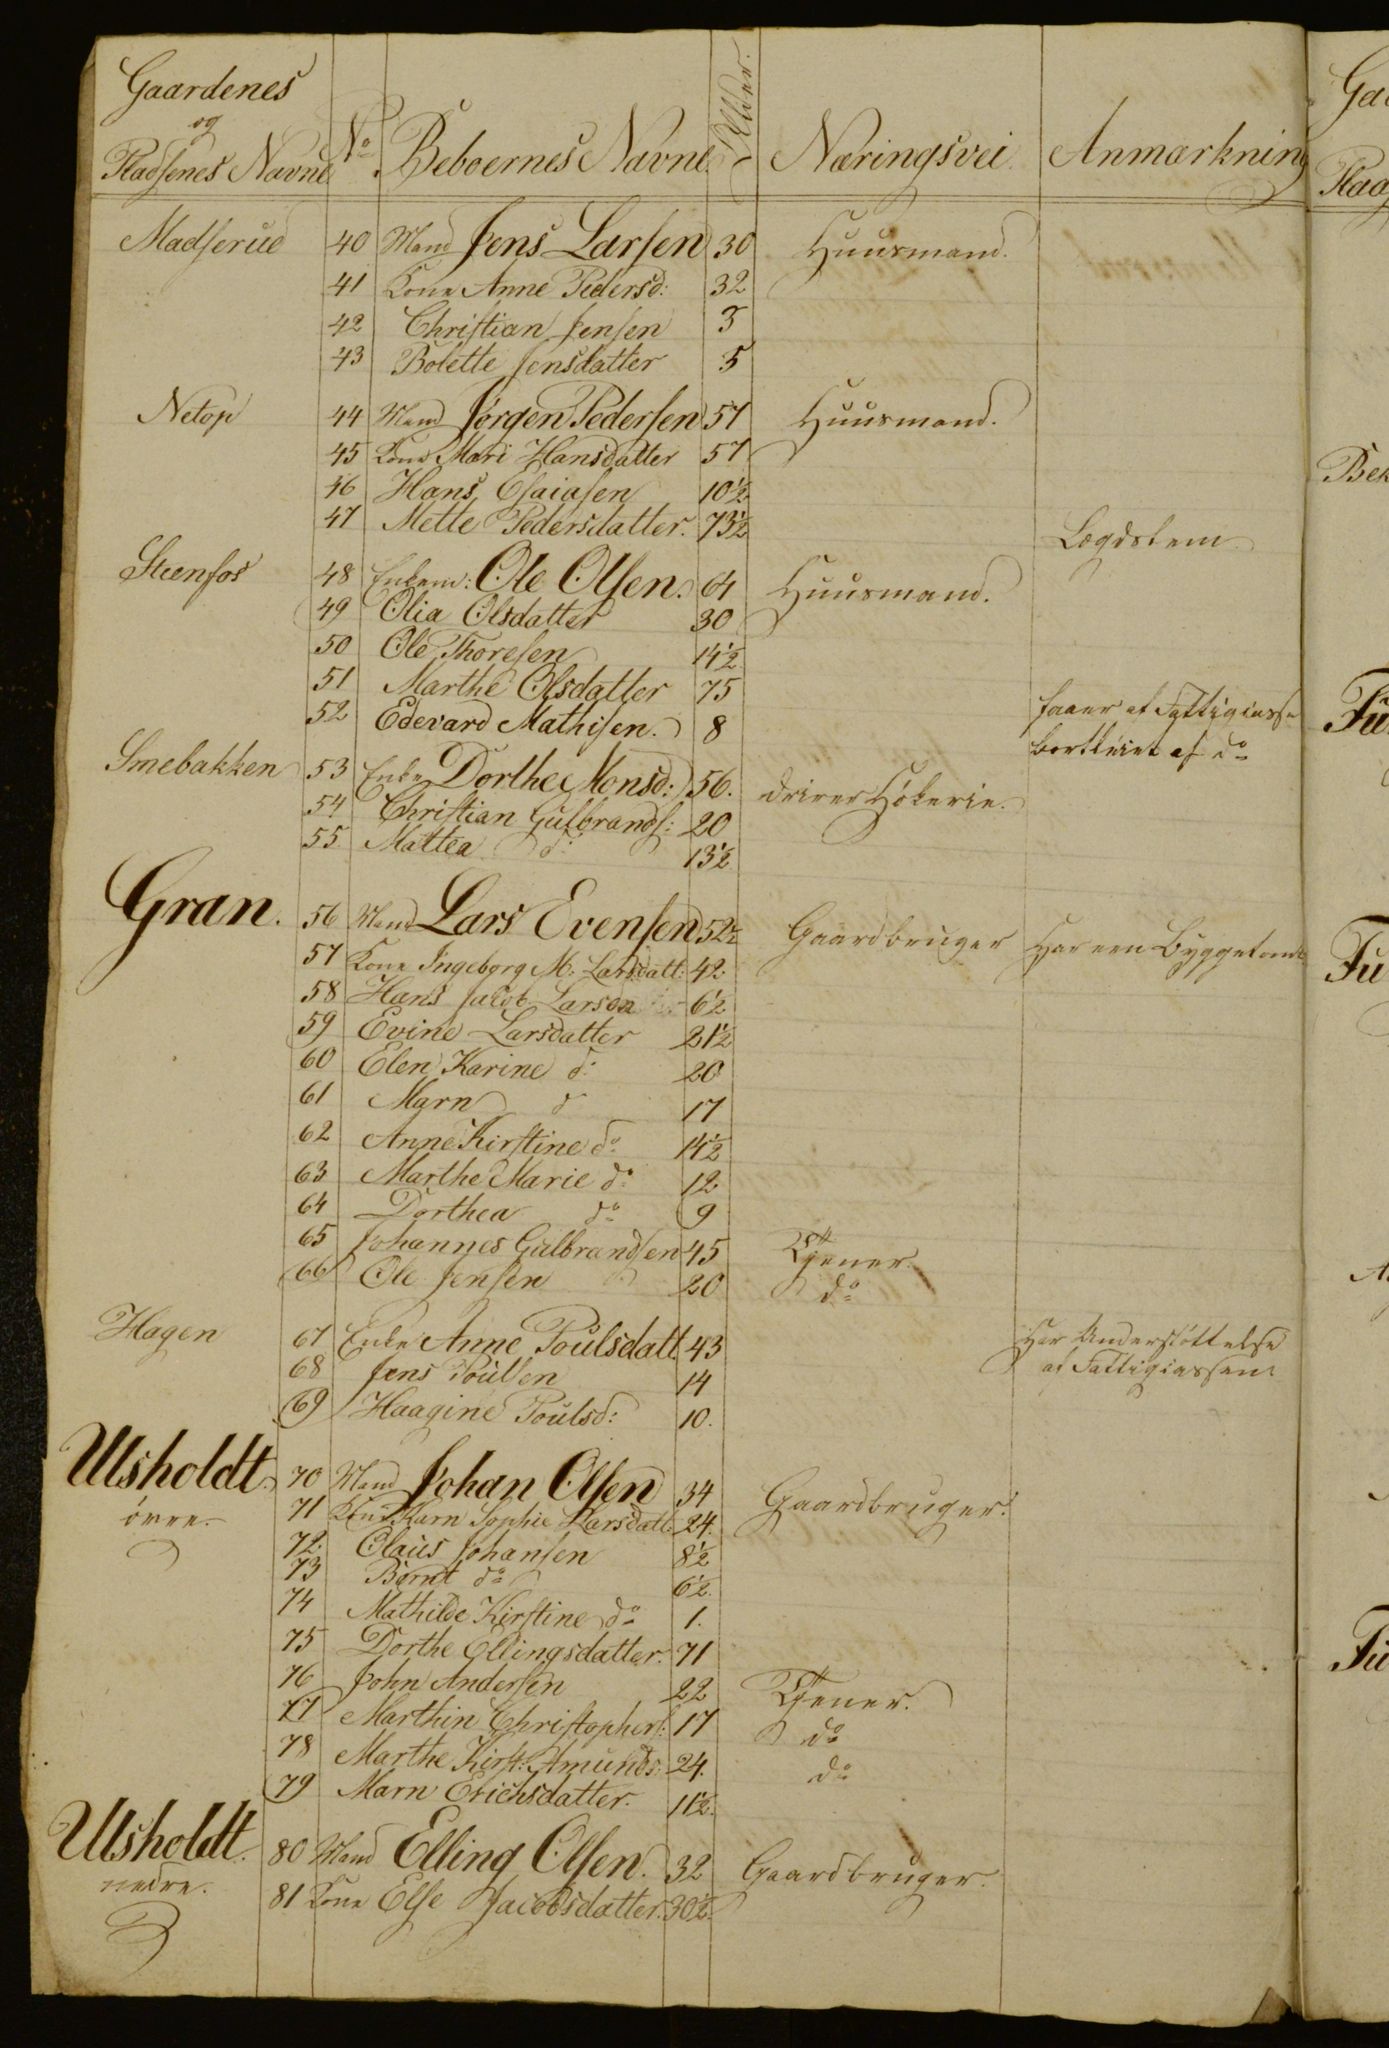 Gaardenes
og
Pladsenes Navne No Beboernes Navne Alder. Næringsvei Anmærkning
Madserud 40 Mand Jens Larsen 30 Huusmand.
41 Kone Anne Pedersd: 32
42 Christian Jensen 3
43 Bolette Jensdatter 5
Netop 44 Mand Jørgen Pedersen 57 Huusmand.
45 Kone Mari Hansdatter 57
46 Hans Esaiasen 10½
47 Mette Pedersdatter. 73½ Lægdslem
Steenfos 48 Enkem: Ole Olsen. 64 Huusmand.
49 Olia Olsdatter 30
50 Ole Thoresen 14½
51 Marthe Olsdatter 75 faaer af Fattigcasse
52 Edevard Mathisen. 8 bortleiet af do
Smebakken 53 Enke Dorthe Monsd: 56. driver Høkerie.
54 Christian Gulbrands: 20
55 Mattea d: 13½
Gran. 56 Mand Lars Evensen 52½ Gaardbruger Har een Byggetomt
57 Kone Ingeborg M: Larsdatt: 42
58 Hans Jacob Larsen 6½
59 Evine Larsdatter 21½
60 Elen Karine d: 20
61 Marn d 17
62 Anne Kirstine do 14½
63 Marthe Marie do 12
64 Dorthea do 9
65 Johannes Gulbrandsen 45 Tjener.
66 Ole Jensen 20 do
Hagen 67 Enke Anne Poulsdatt. 43 Har Understøttelse
68 Jens Poulsen 14 af Fattigcassen
69 Haagine Poulsd: 10.
Ulsholdt 70 Mand Johan Olsen 34 Gaardbruger.
øvre. 71 Kone Karn Sophie Larsdatt: 24.
72. Olaus Johansen 8½
73 Bernt do 6½
74 Mathilde Kirstine do 1.
75 Dorthe Ellingsdatter. 71
76 John Andersen 22 Tjener.
77 Marthin Christophers: 17 do
78 Marthe Kirst: Amunds: 24. do
79 Marn Erichsdatter. 11½
Ulsholdt. 80 Mand Elling Olsen. 32 Gaardbruger.
nedre. 81 Kone Else Jacobsdatter. 30½